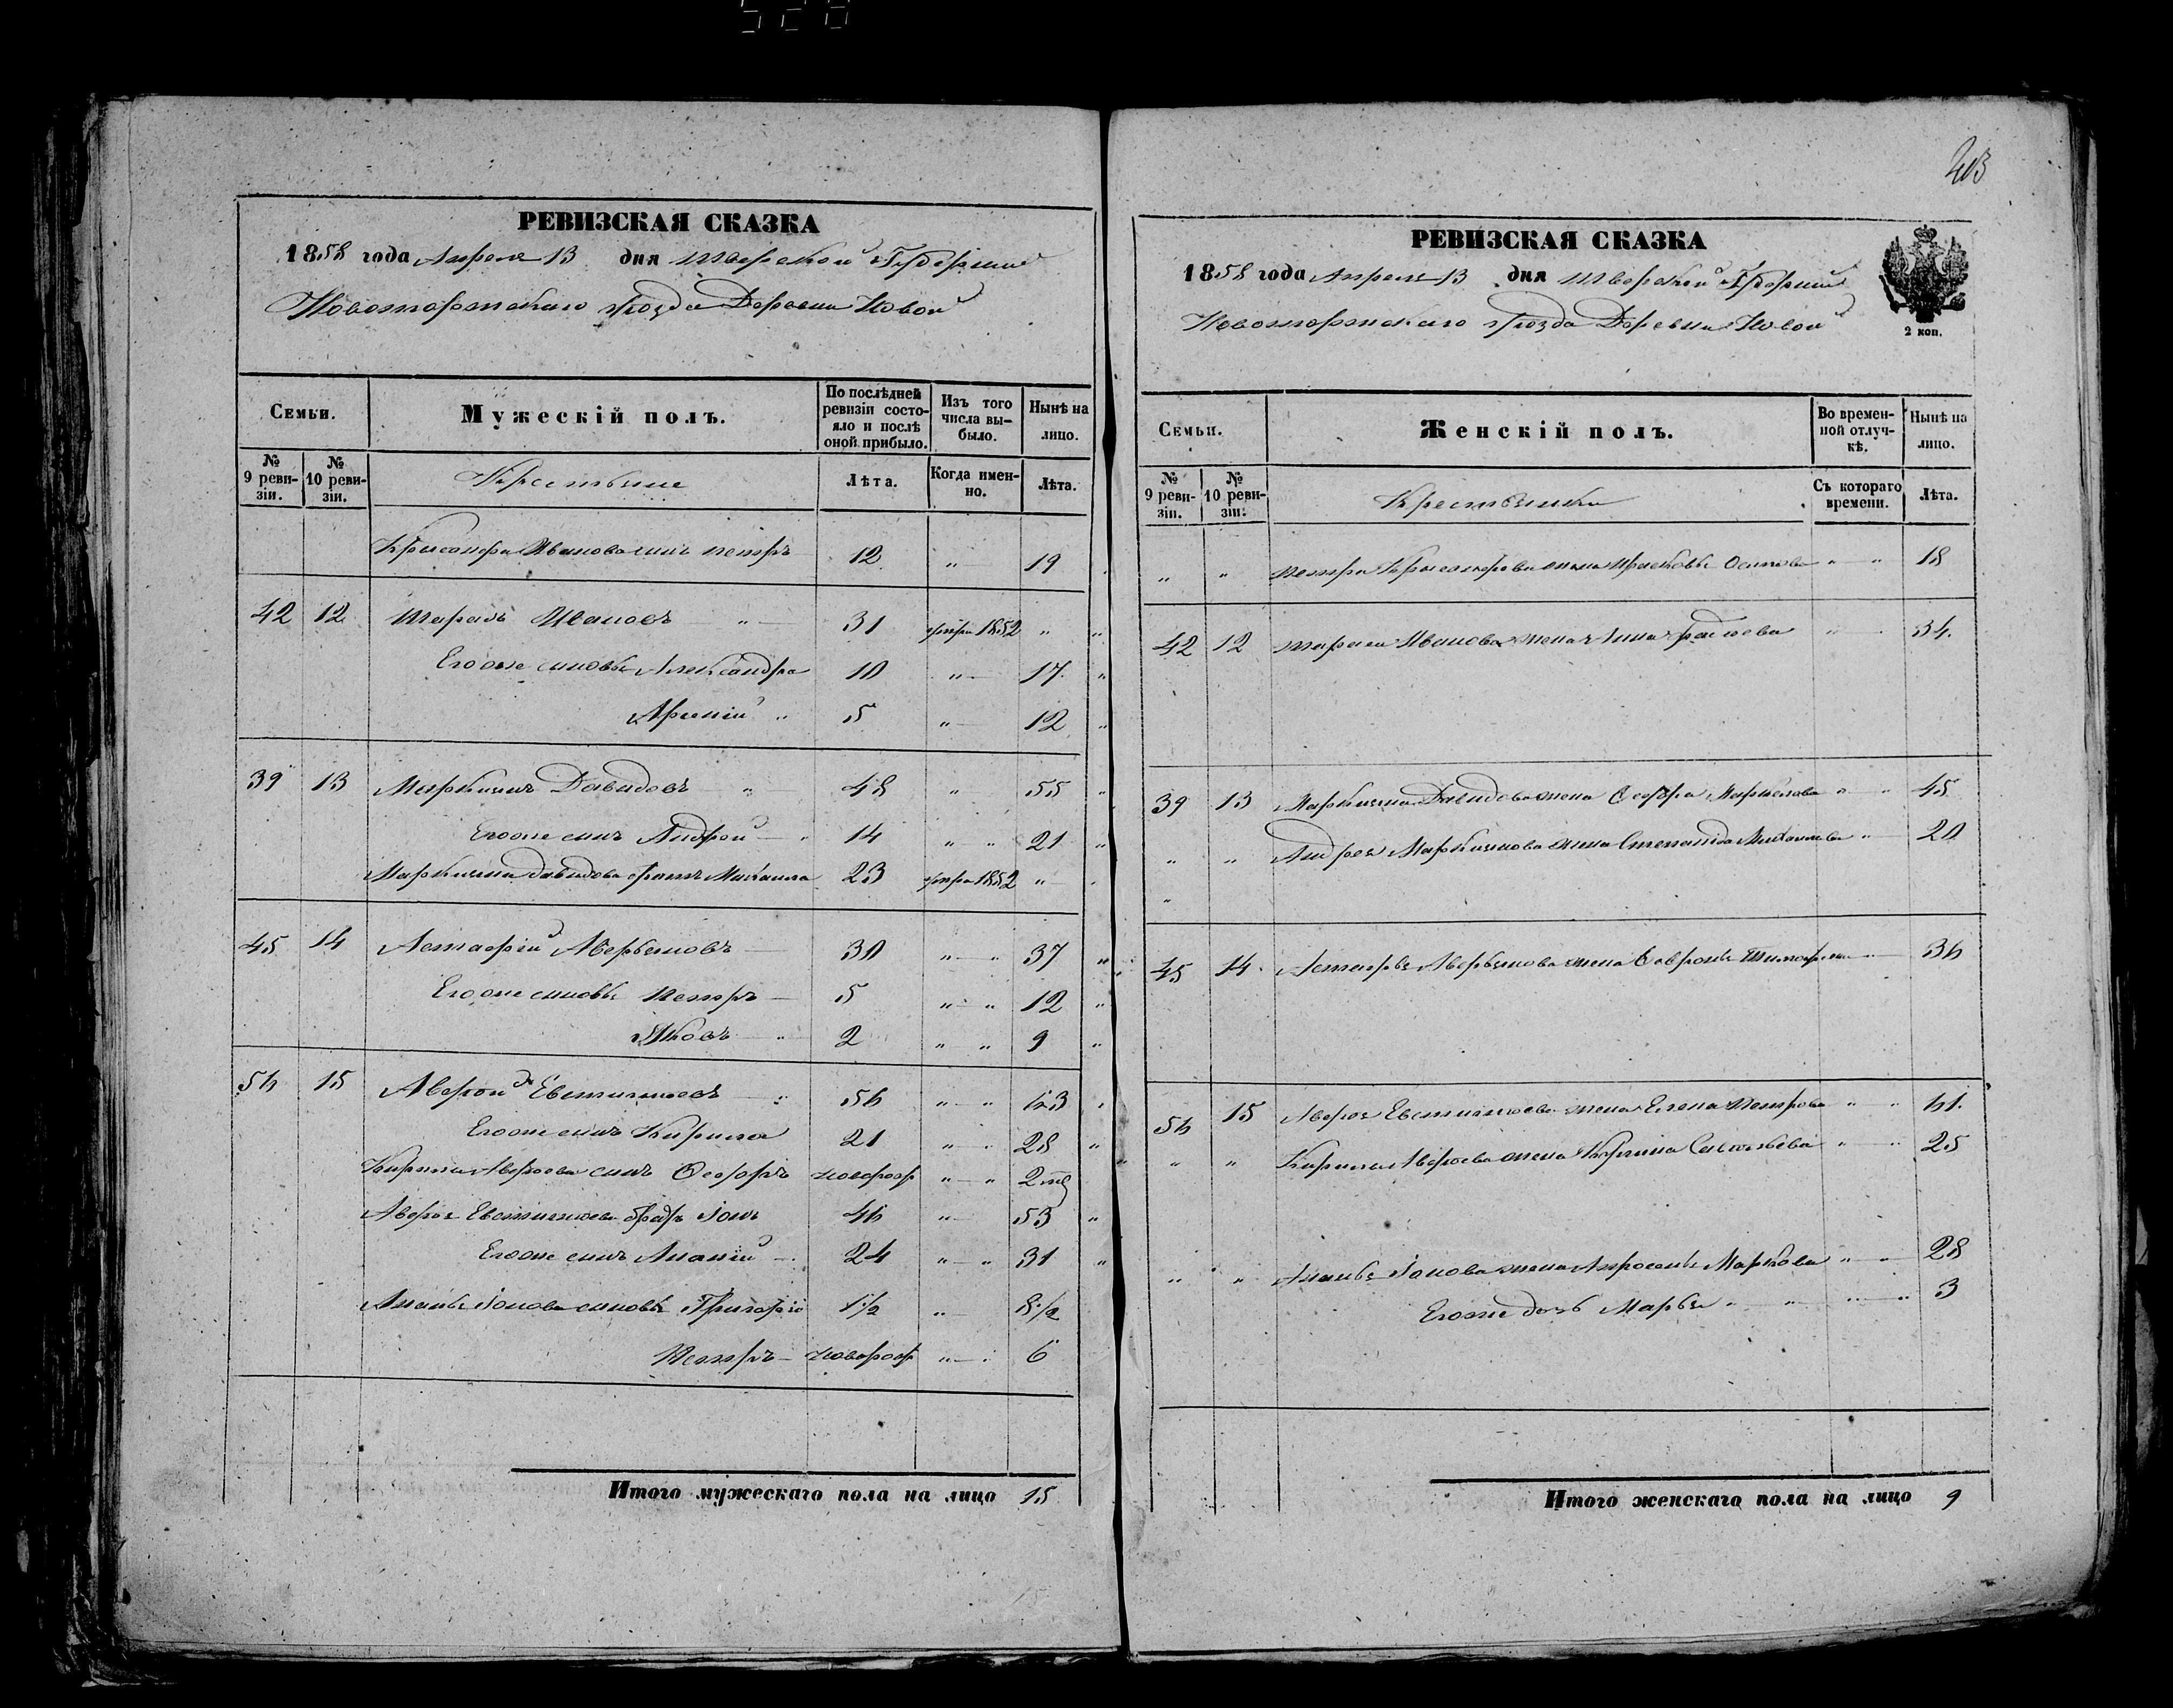 203
РЕВИЗСКАЯ СКАЗКА
1858 года Апреля 13 дня Тверской Губернии
Новоторжскаго Уезда Деревни Новой
Семьи.
Мужескій полъ.
По послѣдней ревизіи состояло и послѣ оной прибыло.
Изъ того числа выбыло.
Ныпѣ на лицо.
№ 9 ревизіи.
№ 10 ревизіи.
Крестьяне
Лѣта.
Когда именно.
Лѣта.
Крисанфа Иванова сынъ Петръ 12 " 19
42 12 Тарасъ Ивановъ " 31 1852 " "
Его же сыновья Александра 10 " 17 "
Арсеній " 5 " 12 "
39 13 Маркианъ Давидовъ " 48 " 55 "
Его же сынъ Андрей " 14 " " 21 "
Маркиана Давидова братъ Михаила 23 1852 "
45 14 Астафій Аверьяновъ 30 " " 37 "
Его же сыновья Петръ 5 " " 12 "
Яковъ " 2 " " 9 "
56 15 Аверей Евстигнеевъ 56 " " 63
Его же сынъ Кирила 21 " " 28 "
Кирила Авереева сынъ Ѳедоръ новорож " " 2 м
Аверея Евстигнеева братъ Іонъ 46 " 53 "
Его же сынъ Ананій 24 " " 31 "
Ананья Іонова сыновья Григорій 1 1/2 " 8 1/2
Петръ новорож " " 6
Итого мужескаго пола на лицо 15
РЕВИЗСКАЯ СКАЗКА
1858 года Апреля 13 дня Тверской Губернии
Новоторжскаго Уезда Деревни Новой
2 коп.
Семьи.
Женскій полъ.
Во временной отлучкѣ.
Нынѣ на лицо.
№ 9 ревизіи.
№ 10 ревизіи.
Крестьянки
Съ котораго времени.
Лѣта.
" " Петра Крисанфова жена Прасковья Осипова " " 18
42 12 Тараса Иванова жена Анна " 34.
39 13 Маркиана Давидова жена Ѳедора Маркелова " " 45
" " Андрея Маркианова жена Степанида Михайлова " 20
"
45 14 Астафья Аверьянова жена Тимофеева 36
56 15 Аверея Евстигнеева жена Елена Петрова " " 61.
" " Кирила Авереева жена Савельева " " 25
" " Ананья Іонова жена Апросинья Маркова " " 28
Его же дочь Марья " " " " 3
Итого женскаго пола на лицо 9